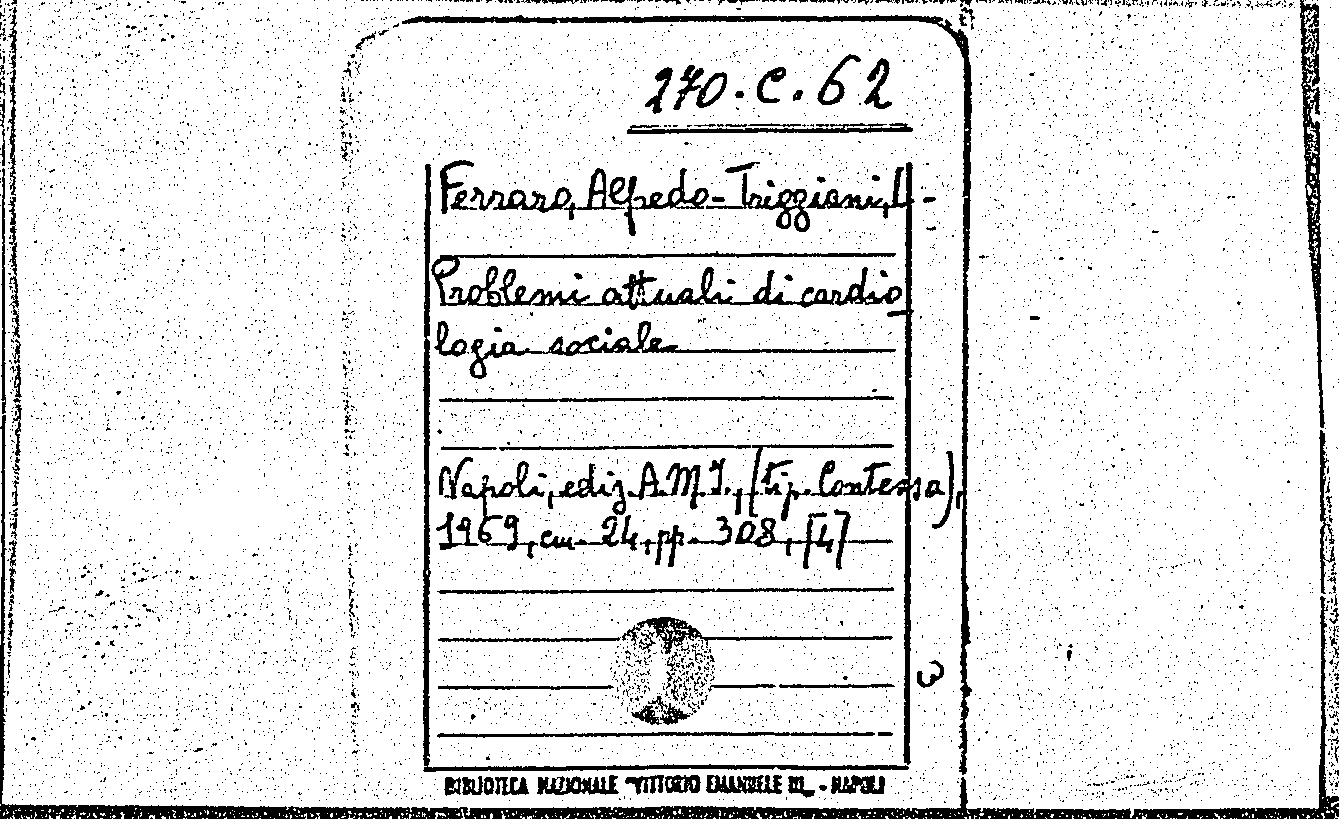 270.C.62
Ferraro, Alfredo - Triggiani, L. -
Problemi attuali di cardio
logia sociale
Napoli, ediz. A.M.I., (tip. Contessa),
1969, cm. 24, pp. 308, [4]
BIBLIOTECA NAZIONALE "VITTORIO EMANUELE III" - NAPOLI